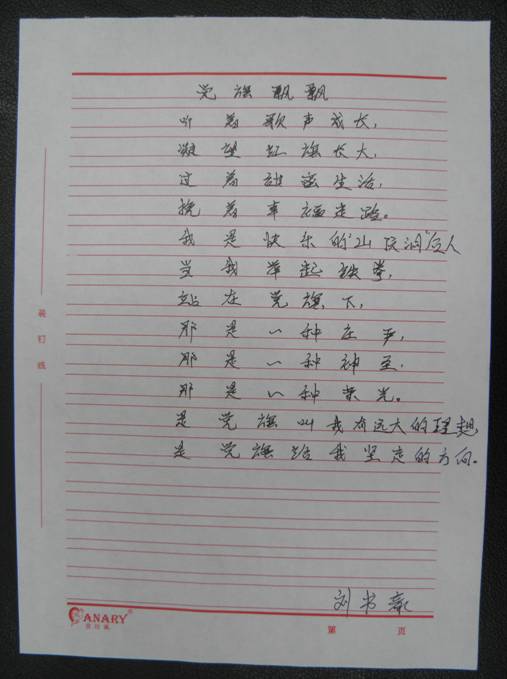 党旗飘飘
听着歌声成长，
凝望红旗长大，
过着甜蜜生活，
挽着幸福走路。
我是快乐的"山顶洞"后人
当我举起铁拳，
站在党旗下，
那是一种庄严，
那是一种神圣，
那是一种荣光。
是党旗叫我有远大的理想
是党旗给我坚定的方向。
刘书
装订线
CANARY®
第 页